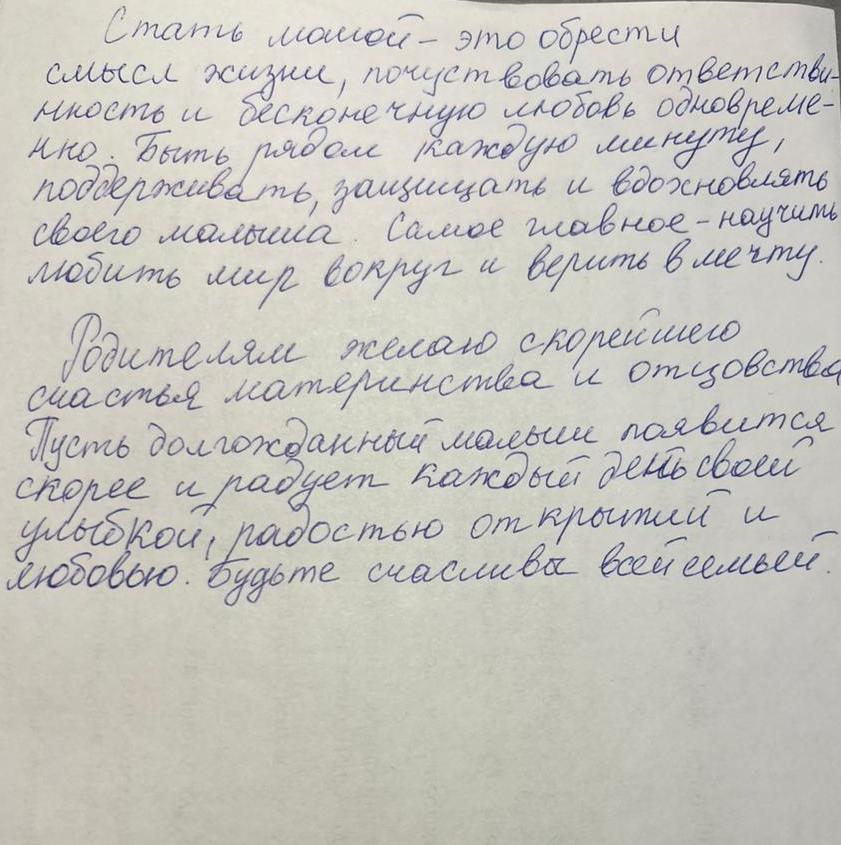 Стать мамой - это обрести
смысл жизни, почуствовать ответстви-
нность и бесконечную любовь одновреме-
нно. Быть рядом каждую минуту,
поддерживать, защищать и вдохновлять
своего малыша. Самое главное - научить
любить мир вокруг и верить в мечту.
Родителям желаю скорейшего
счастья материнства и отцовства
Пусть долгожданный малыш появится
скорее и радует каждый день своей
улыбкой, радостью открытий и
любовью. Будьте счасливы всей семьей.